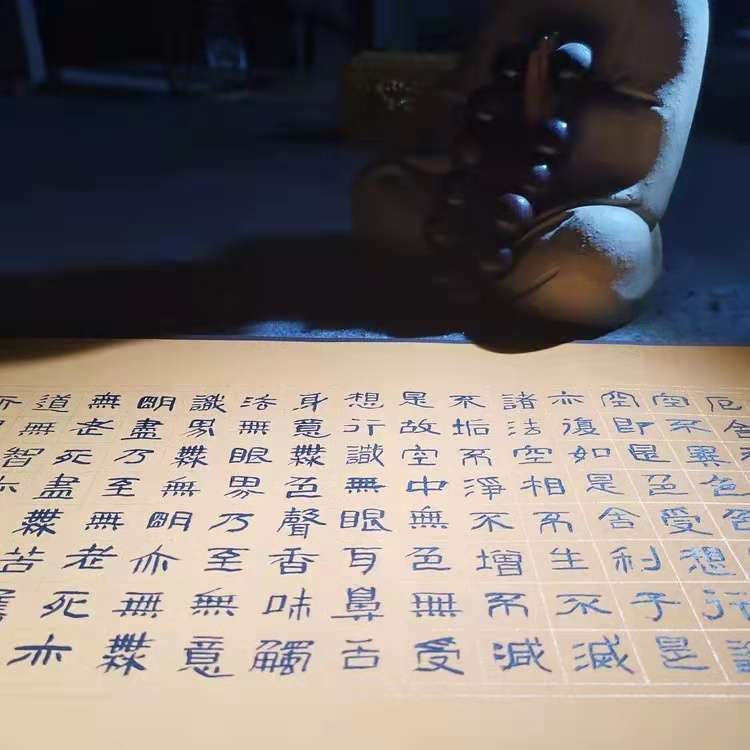 厄舍
空不異色
空即是色受想行識
亦復如是舍利子是
諸法空相不生不滅
不垢不淨不增不減
是故空中無色無受
想行識無眼耳鼻舌
身意無色聲香味觸
法無眼界乃至無意
識界無無明亦無無
明盡乃至無老死亦
無老死盡無苦集
道無智亦